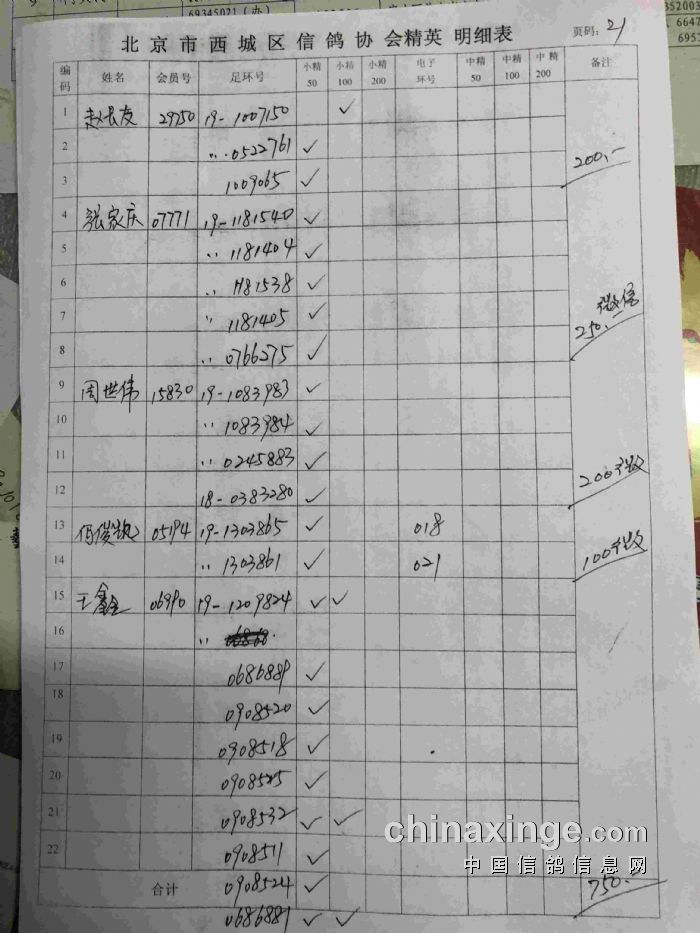 69345021（办）
北京市西城区信鸽协会精英 明细表 页码：21
编码 姓名 会员号 足环号 小精50 小精100 小精200 电子环号 中精50 中精100 中精200 备注
1 赵长友 29750 19-1007150 ✓
2 〃 0522761 ✓ 200.-
3 1009065 ✓
4 张家庆 07771 19-1181540 ✓
5 〃 1181404 ✓
6 〃 1181538 ✓
7 〃 1181405 ✓ 微信 250.-
8 〃 0766275 ✓
9 周世伟 15830 19-1083983 ✓
10 〃 1083984 ✓
11 〃 0245883 ✓ 200
12 18-0383280 ✓
13 05194 19-1303865 ✓ 018
14 〃 1303861 ✓ 021 100
15 王鑫 06990 19-1209824 ✓ ✓
16 〃
17 0686889 ✓
18 0908520 ✓
19 0908518 ✓
20 0908525 ✓
21 0908532 ✓ ✓
22 0908511 ✓
合计 0908524 ✓ 750.-
0686881 ✓ ✓
chinaxinge.com
中国信鸽信息网